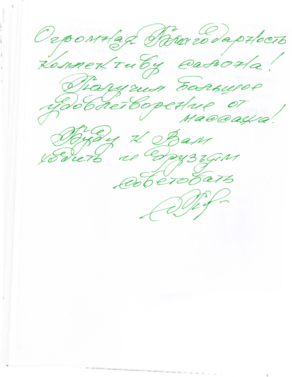 Огромная Благодарность
коллективу салона!
Получил Большое
удовлетворение от
массажа!
Буду к Вам
ходить и друзьям
советовать